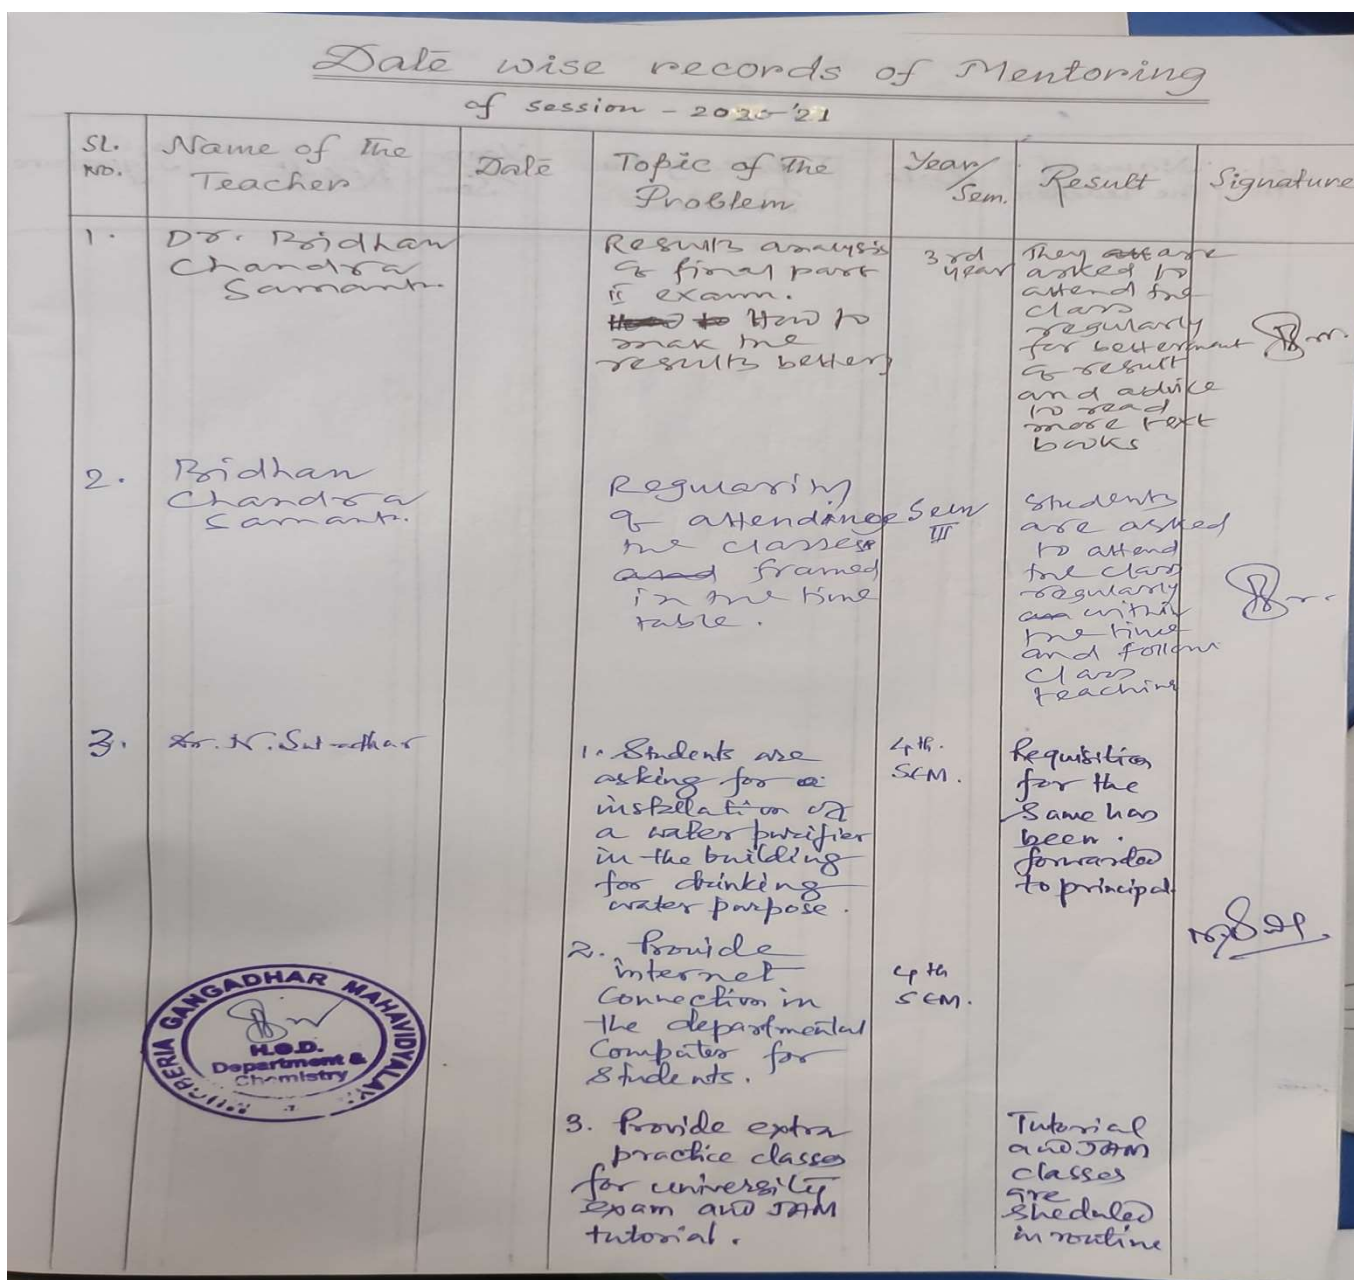 Date wise records of Mentoring
of session - 2020-'21
SL. NO.
Name of the Teacher
Date
Topic of the Problem
Year/ Sem.
Result
Signature
1.
Dr. Bidhan
Chandra
Samanta.
Results analysis
of final part
II exam.
How to
mak the
results better
3rd
year
They are
asked to
attend the
class
regularly
for betterment
of result
and advice
to read
more text
books
2.
Bidhan
Chandra
Samanta.
Regularity
of attendince
the classes
framed
in the time
table.
Sem
III
Students
are asked
to attend
the class
regularly
within
the time
and follow
class
teaching
3.
Dr. N. Sutradhar
1. Students are
asking for
installation of
a water purifier
in the building
for drinking
water purpose.
4th.
SEM.
Requisition
for the
same has
been.
forwarded
to principal
2. Provide
internet
Connection in
the departmental
Computer for
Students.
4th
SEM.
3. Provide extra
practice classes
for university
exam and JAM
tutorial.
Tutorial
and JAM
classes
are
sheduled
in routine
GANGADHAR MAHAVIDYALAYA
H.O.D.
Department &
Chemistry